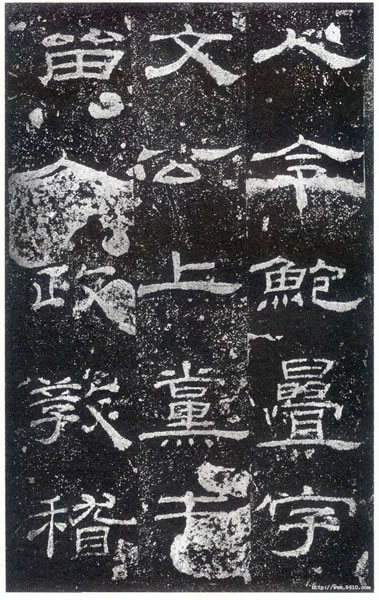 人令鮑疊字
文公上黨屯
留人政教稽
http://www.9610.com